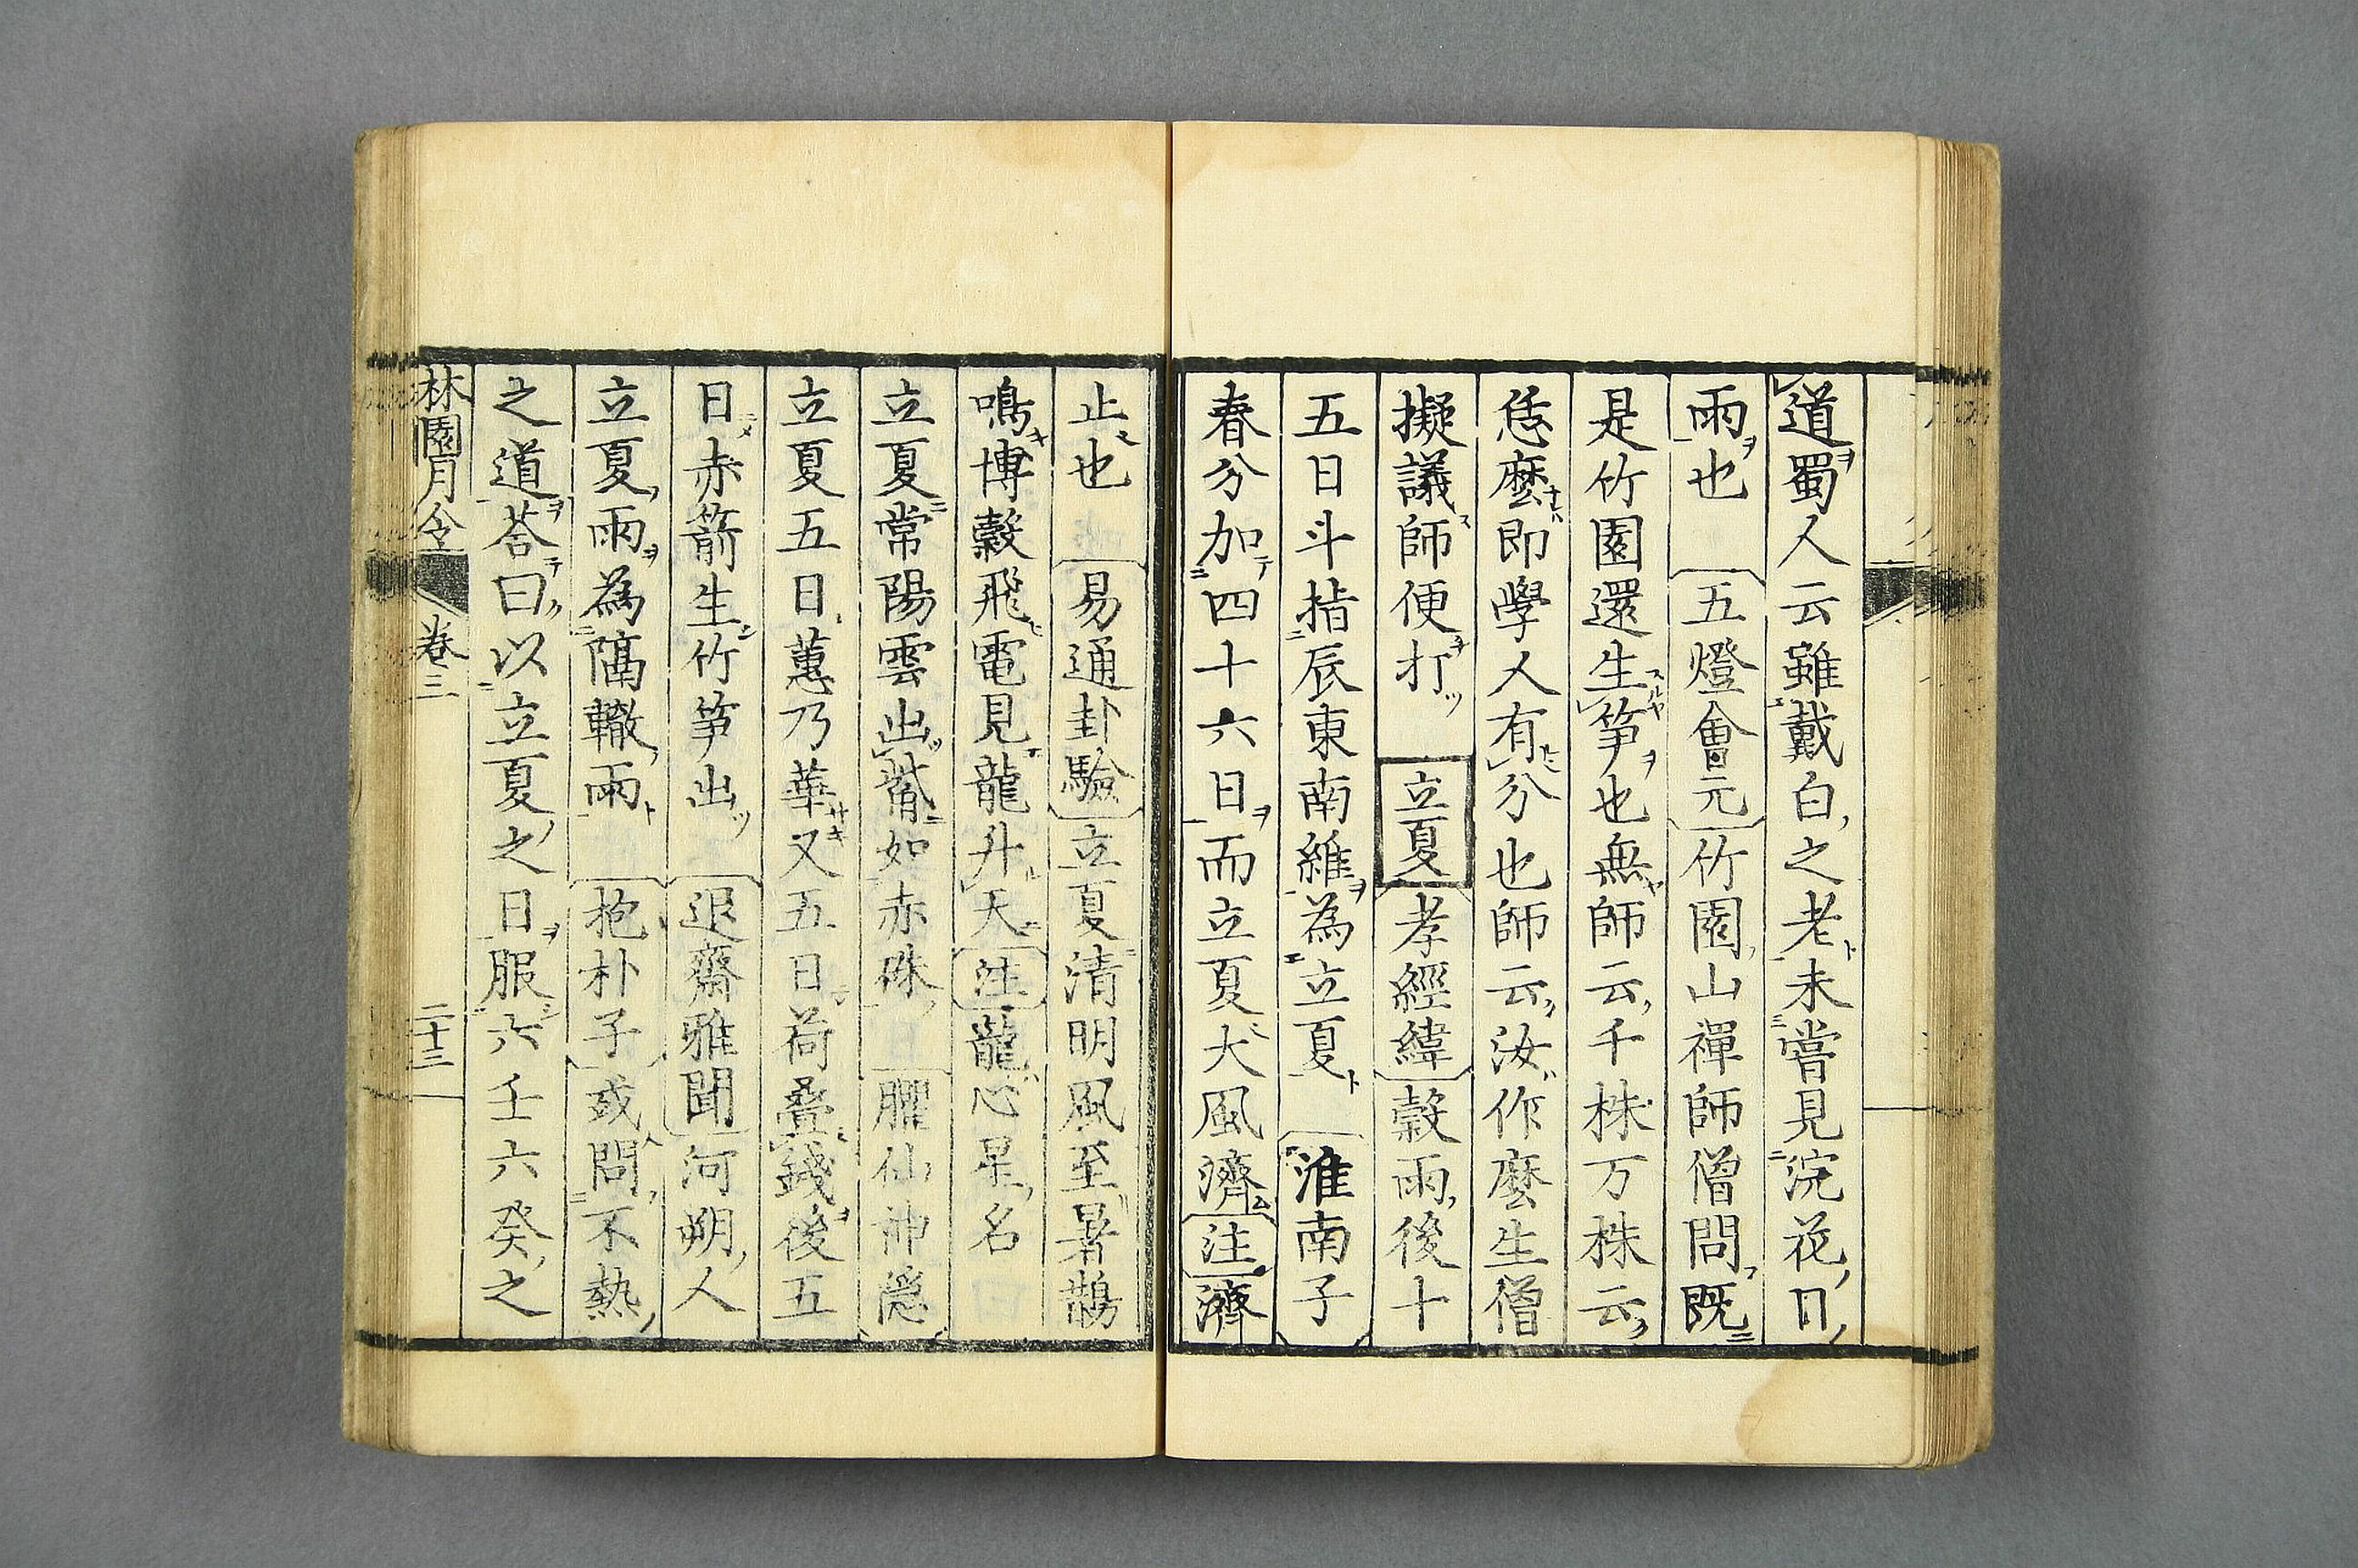 道蜀人云雖戴白之老未嘗見浣花日
雨也 五燈會元 竹園山禪師僧問既
是竹園還生笋也無師云千株万株云
恁麼即學人有分也師云汝作麼生僧
擬議師便打 立夏 孝經緯 穀雨後十
五日斗指辰東南維為立夏 淮南子
春分加四十六日而立夏大風濟 注 濟
止也 易通卦驗 立夏清明風至暑鵲
鳴博穀飛電見龍升天 注 龍心星名
立夏常陽雲出觜如赤珠 臞仙神隱
立夏五日蕙乃華又五日荷疊錢後五
日赤箭生竹笋出 退齋雅聞 河朔人
立夏雨為隔轍雨 抱朴子 或問不熱
之道荅曰以立夏之日服六壬六癸之
林園月令 卷三 二十三